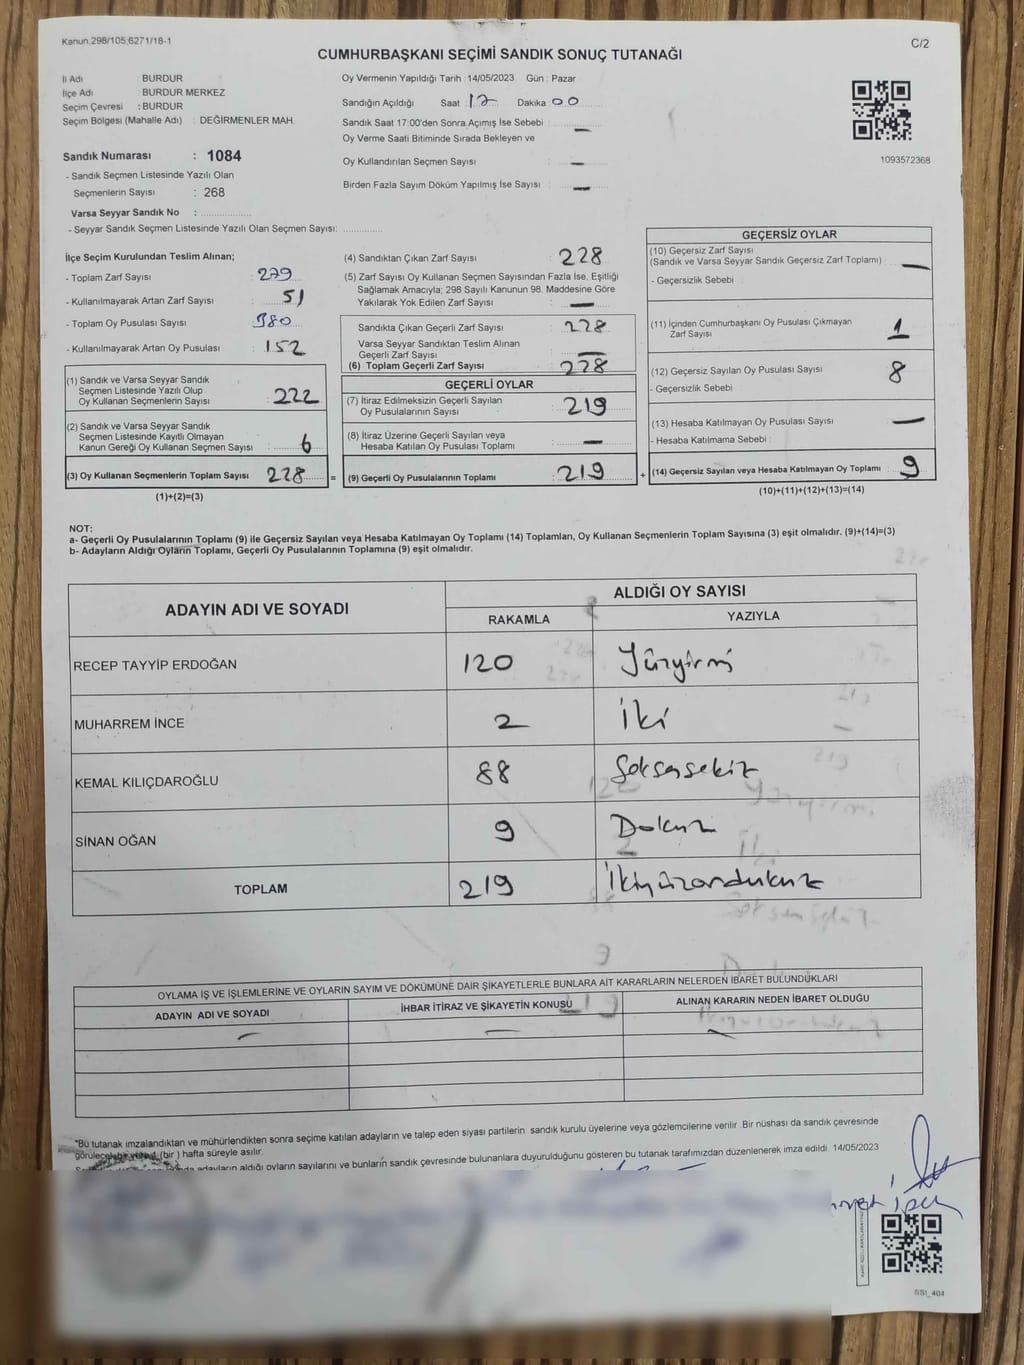 Kanun.298/105;6271/18-1
C/2
CUMHURBAŞKANI SEÇİMİ SANDIK SONUÇ TUTANAĞI
İl Adı : BURDUR
İlçe Adı : BURDUR MERKEZ
Seçim Çevresi : BURDUR
Seçim Bölgesi (Mahalle Adı) : DEĞİRMENLER MAH.
Sandık Numarası : 1084
- Sandık Seçmen Listesinde Yazılı Olan
Seçmenlerin Sayısı : 268
Varsa Seyyar Sandık No :
- Seyyar Sandık Seçmen Listesinde Yazılı Olan Seçmen Sayısı:
Oy Vermenin Yapıldığı Tarih : 14/05/2023 Gün : Pazar
Sandığın Açıldığı Saat 17 Dakika 00
Sandık Saat 17:00'den Sonra Açımış İse Sebebi : —
Oy Verme Saati Bitiminde Sırada Bekleyen ve
Oy Kullandırılan Seçmen Sayısı : —
Birden Fazla Sayım Döküm Yapılmış İse Sayısı : —
1093572368
İlçe Seçim Kurulundan Teslim Alınan;
- Toplam Zarf Sayısı : 279
- Kullanılmayarak Artan Zarf Sayısı : 51
- Toplam Oy Pusulası Sayısı : 380
- Kullanılmayarak Artan Oy Pusulası : 152
(1) Sandık ve Varsa Seyyar Sandık
Seçmen Listesinde Yazılı Olup
Oy Kullanan Seçmenlerin Sayısı : 222
(2) Sandık ve Varsa Seyyar Sandık
Seçmen Listesinde Kayıtlı Olmayan
Kanun Gereği Oy Kullanan Seçmen Sayısı : 6
(3) Oy Kullanan Seçmenlerin Toplam Sayısı 228 =
(1)+(2)=(3)
(4) Sandıktan Çıkan Zarf Sayısı : 228
(5) Zarf Sayısı Oy Kullanan Seçmen Sayısından Fazla İse, Eşitliği
Sağlamak Amacıyla; 298 Sayılı Kanunun 98. Maddesine Göre
Yakılarak Yok Edilen Zarf Sayısı : —
Sandıkta Çıkan Geçerli Zarf Sayısı : 228
Varsa Seyyar Sandıktan Teslim Alınan
Geçerli Zarf Sayısı : —
(6) Toplam Geçerli Zarf Sayısı : 228
GEÇERLİ OYLAR
(7) İtiraz Edilmeksizin Geçerli Sayılan
Oy Pusulalarının Sayısı : 219
(8) İtiraz Üzerine Geçerli Sayılan veya
Hesaba Katılan Oy Pusulası Toplamı : —
(9) Geçerli Oy Pusulalarının Toplamı : 219 +
GEÇERSİZ OYLAR
(10) Geçersiz Zarf Sayısı
(Sandık ve Varsa Seyyar Sandık Geçersiz Zarf Toplamı) : —
- Geçersizlik Sebebi :
(11) İçinden Cumhurbaşkanı Oy Pusulası Çıkmayan
Zarf Sayısı : 1
(12) Geçersiz Sayılan Oy Pusulası Sayısı : 8
- Geçersizlik Sebebi :
(13) Hesaba Katılmayan Oy Pusulası Sayısı : —
- Hesaba Katılmama Sebebi :
(14) Geçersiz Sayılan veya Hesaba Katılmayan Oy Toplamı : 9
(10)+(11)+(12)+(13)=(14)
NOT:
a- Geçerli Oy Pusulalarının Toplamı (9) ile Geçersiz Sayılan veya Hesaba Katılmayan Oy Toplamı (14) Toplamları, Oy Kullanan Seçmenlerin Toplam Sayısına (3) eşit olmalıdır. (9)+(14)=(3)
b- Adayların Aldığı Oyların Toplamı, Geçerli Oy Pusulalarının Toplamına (9) eşit olmalıdır.
ADAYIN ADI VE SOYADI
ALDIĞI OY SAYISI
RAKAMLA YAZIYLA
RECEP TAYYİP ERDOĞAN 120 Yüzyirmi
MUHARREM İNCE 2 İki
KEMAL KILIÇDAROĞLU 88 Seksensekiz
SİNAN OĞAN 9 Dokuz
TOPLAM 219 İkiyüzondokuz
OYLAMA İŞ VE İŞLEMLERİNE VE OYLARIN SAYIM VE DÖKÜMÜNE DAİR ŞİKAYETLERLE BUNLARA AİT KARARLARIN NELERDEN İBARET BULUNDUKLARI
ADAYIN ADI VE SOYADI İHBAR İTİRAZ VE ŞİKAYETİN KONUSU ALINAN KARARIN NEDEN İBARET OLDUĞU
— — —
*Bu tutanak imzalandıktan ve mühürlendikten sonra seçime katılan adayların ve talep eden siyasi partilerin sandık kurulu üyelerine veya gözlemcilerine verilir. Bir nüshası da sandık çevresinde
görülecek bir yerde 1 (bir) hafta süreyle asılır.
adayların aldığı oyların sayılarını ve bunların sandık çevresinde bulunanlara duyurulduğunu gösteren bu tutanak tarafımızdan düzenlenerek imza edildi. 14/05/2023
SS1_404